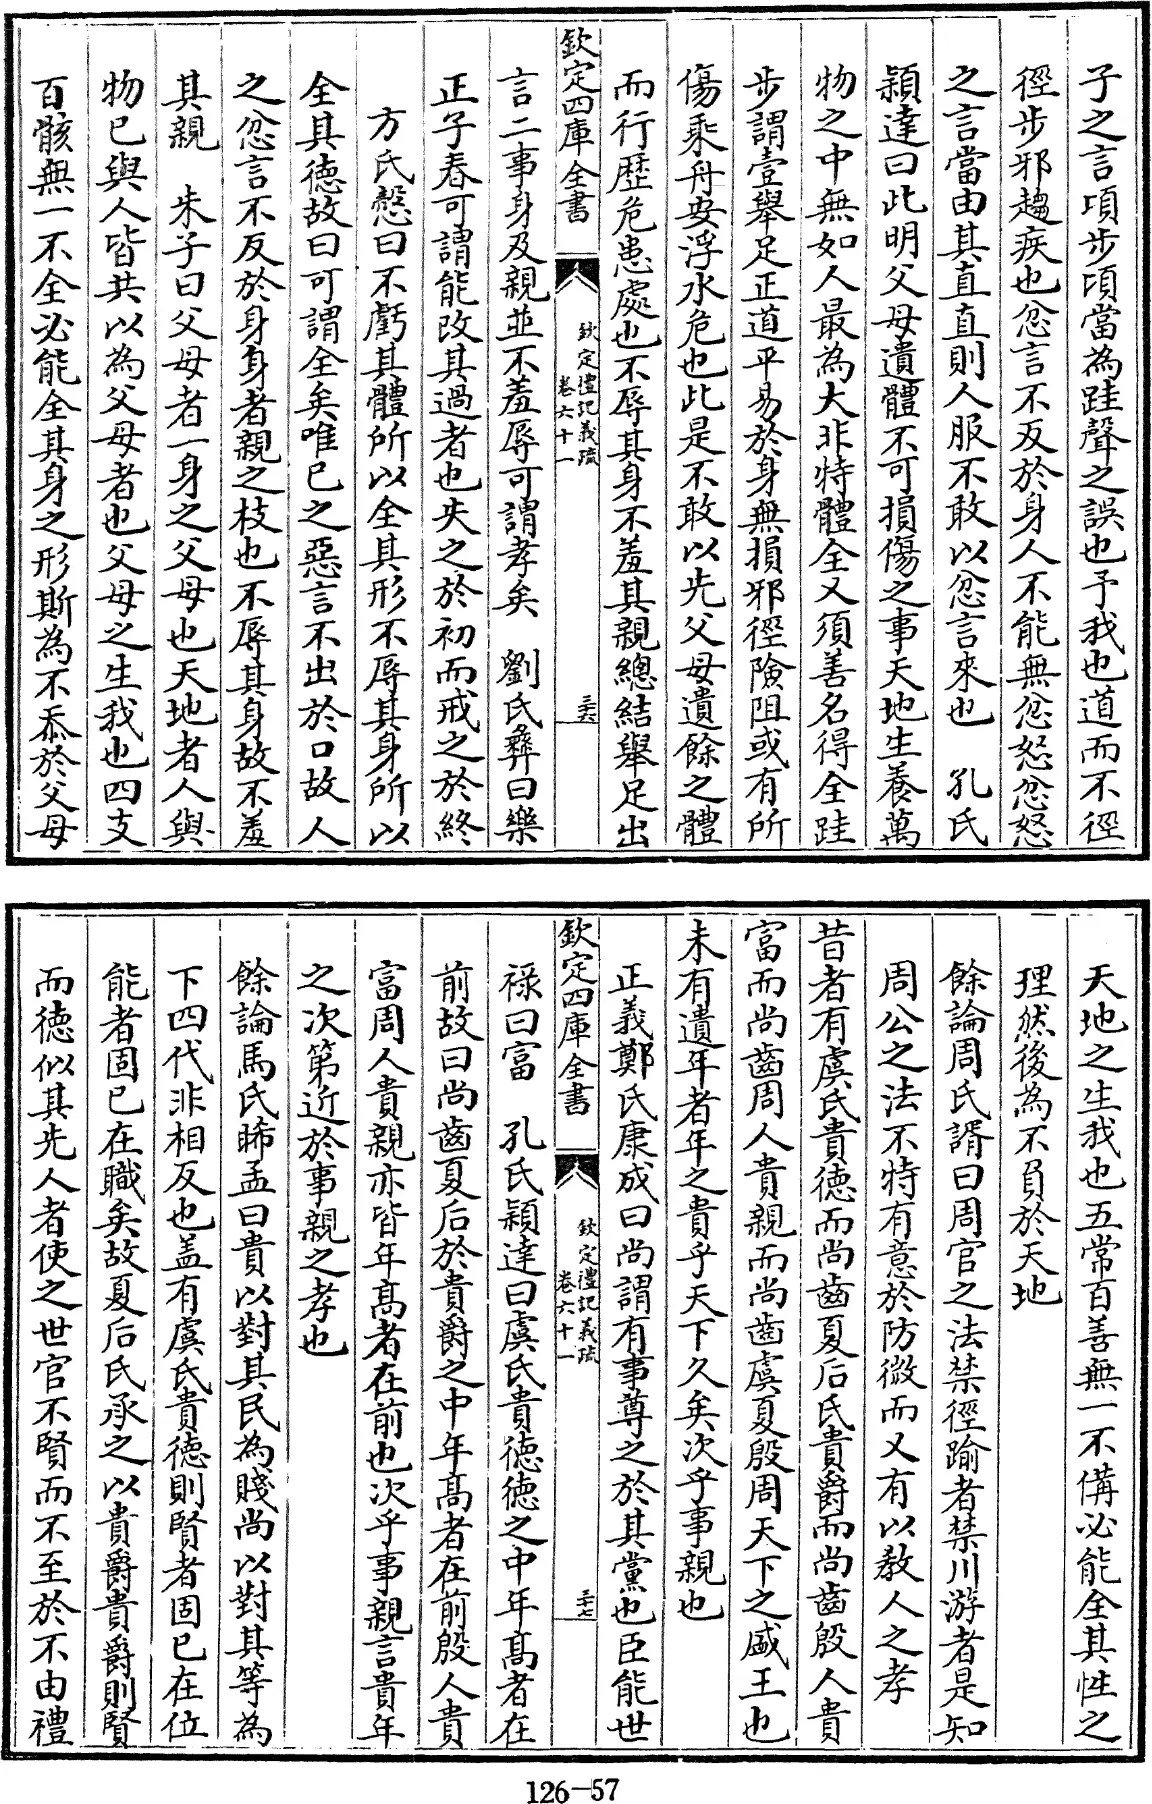 子之言頃步頃當為跬聲之誤也予我也道而不徑
徑步邪趨疾也忿言不反於身人不能無忿怒忿怒
之言當由其直直則人服不敢以忿言來也　孔氏
穎達曰此明父母遺體不可損傷之事天地生養萬
物之中無如人最為大非特體全又須善名得全跬
步謂壹舉足正道平易於身無損邪徑險阻或有所
傷乘舟安浮水危也此是不敢以先父母遺餘之體
而行歴危患處也不辱其身不羞其親總結舉足出
欽定四庫全書
欽定禮記義疏
卷六十一
三十六
言二事身及親並不羞辱可謂孝矣　劉氏彝曰樂
正子春可謂能改其過者也失之於初而戒之於終
方氏慤曰不虧其體所以全其形不辱其身所以
全其德故曰可謂全矣唯已之惡言不出於口故人
之忿言不反於身身者親之枝也不辱其身故不羞
其親　朱子曰父母者一身之父母也天地者人與
物已與人皆共以為父母者也父母之生我也四支
百骸無一不全必能全其身之形斯為不忝於父母
天地之生我也五常百善無一不備必能全其性之
理然後為不負於天地
餘論周氏諝曰周官之法禁徑踰者禁川游者是知
周公之法不特有意於防微而又有以教人之孝
昔者有虞氏貴德而尚齒夏后氏貴爵而尚齒殷人貴
富而尚齒周人貴親而尚齒虞夏殷周天下之盛王也
未有遺年者年之貴乎天下久矣次乎事親也
正義鄭氏康成曰尚謂有事尊之於其黨也臣能世
欽定四庫全書
欽定禮記義疏
卷六十一
三十七
祿曰富　孔氏穎達曰虞氏貴德德之中年高者在
前故曰尚齒夏后於貴爵之中年高者在前殷人貴
富周人貴親亦皆年高者在前也次乎事親言貴年
之次第近於事親之孝也
餘論馬氏晞孟曰貴以對其民為賤尚以對其等為
下四代非相反也蓋有虞氏貴德則賢者固已在位
能者固已在職矣故夏后氏承之以貴爵貴爵則賢
而德似其先人者使之世官不賢而不至於不由禮
126—57